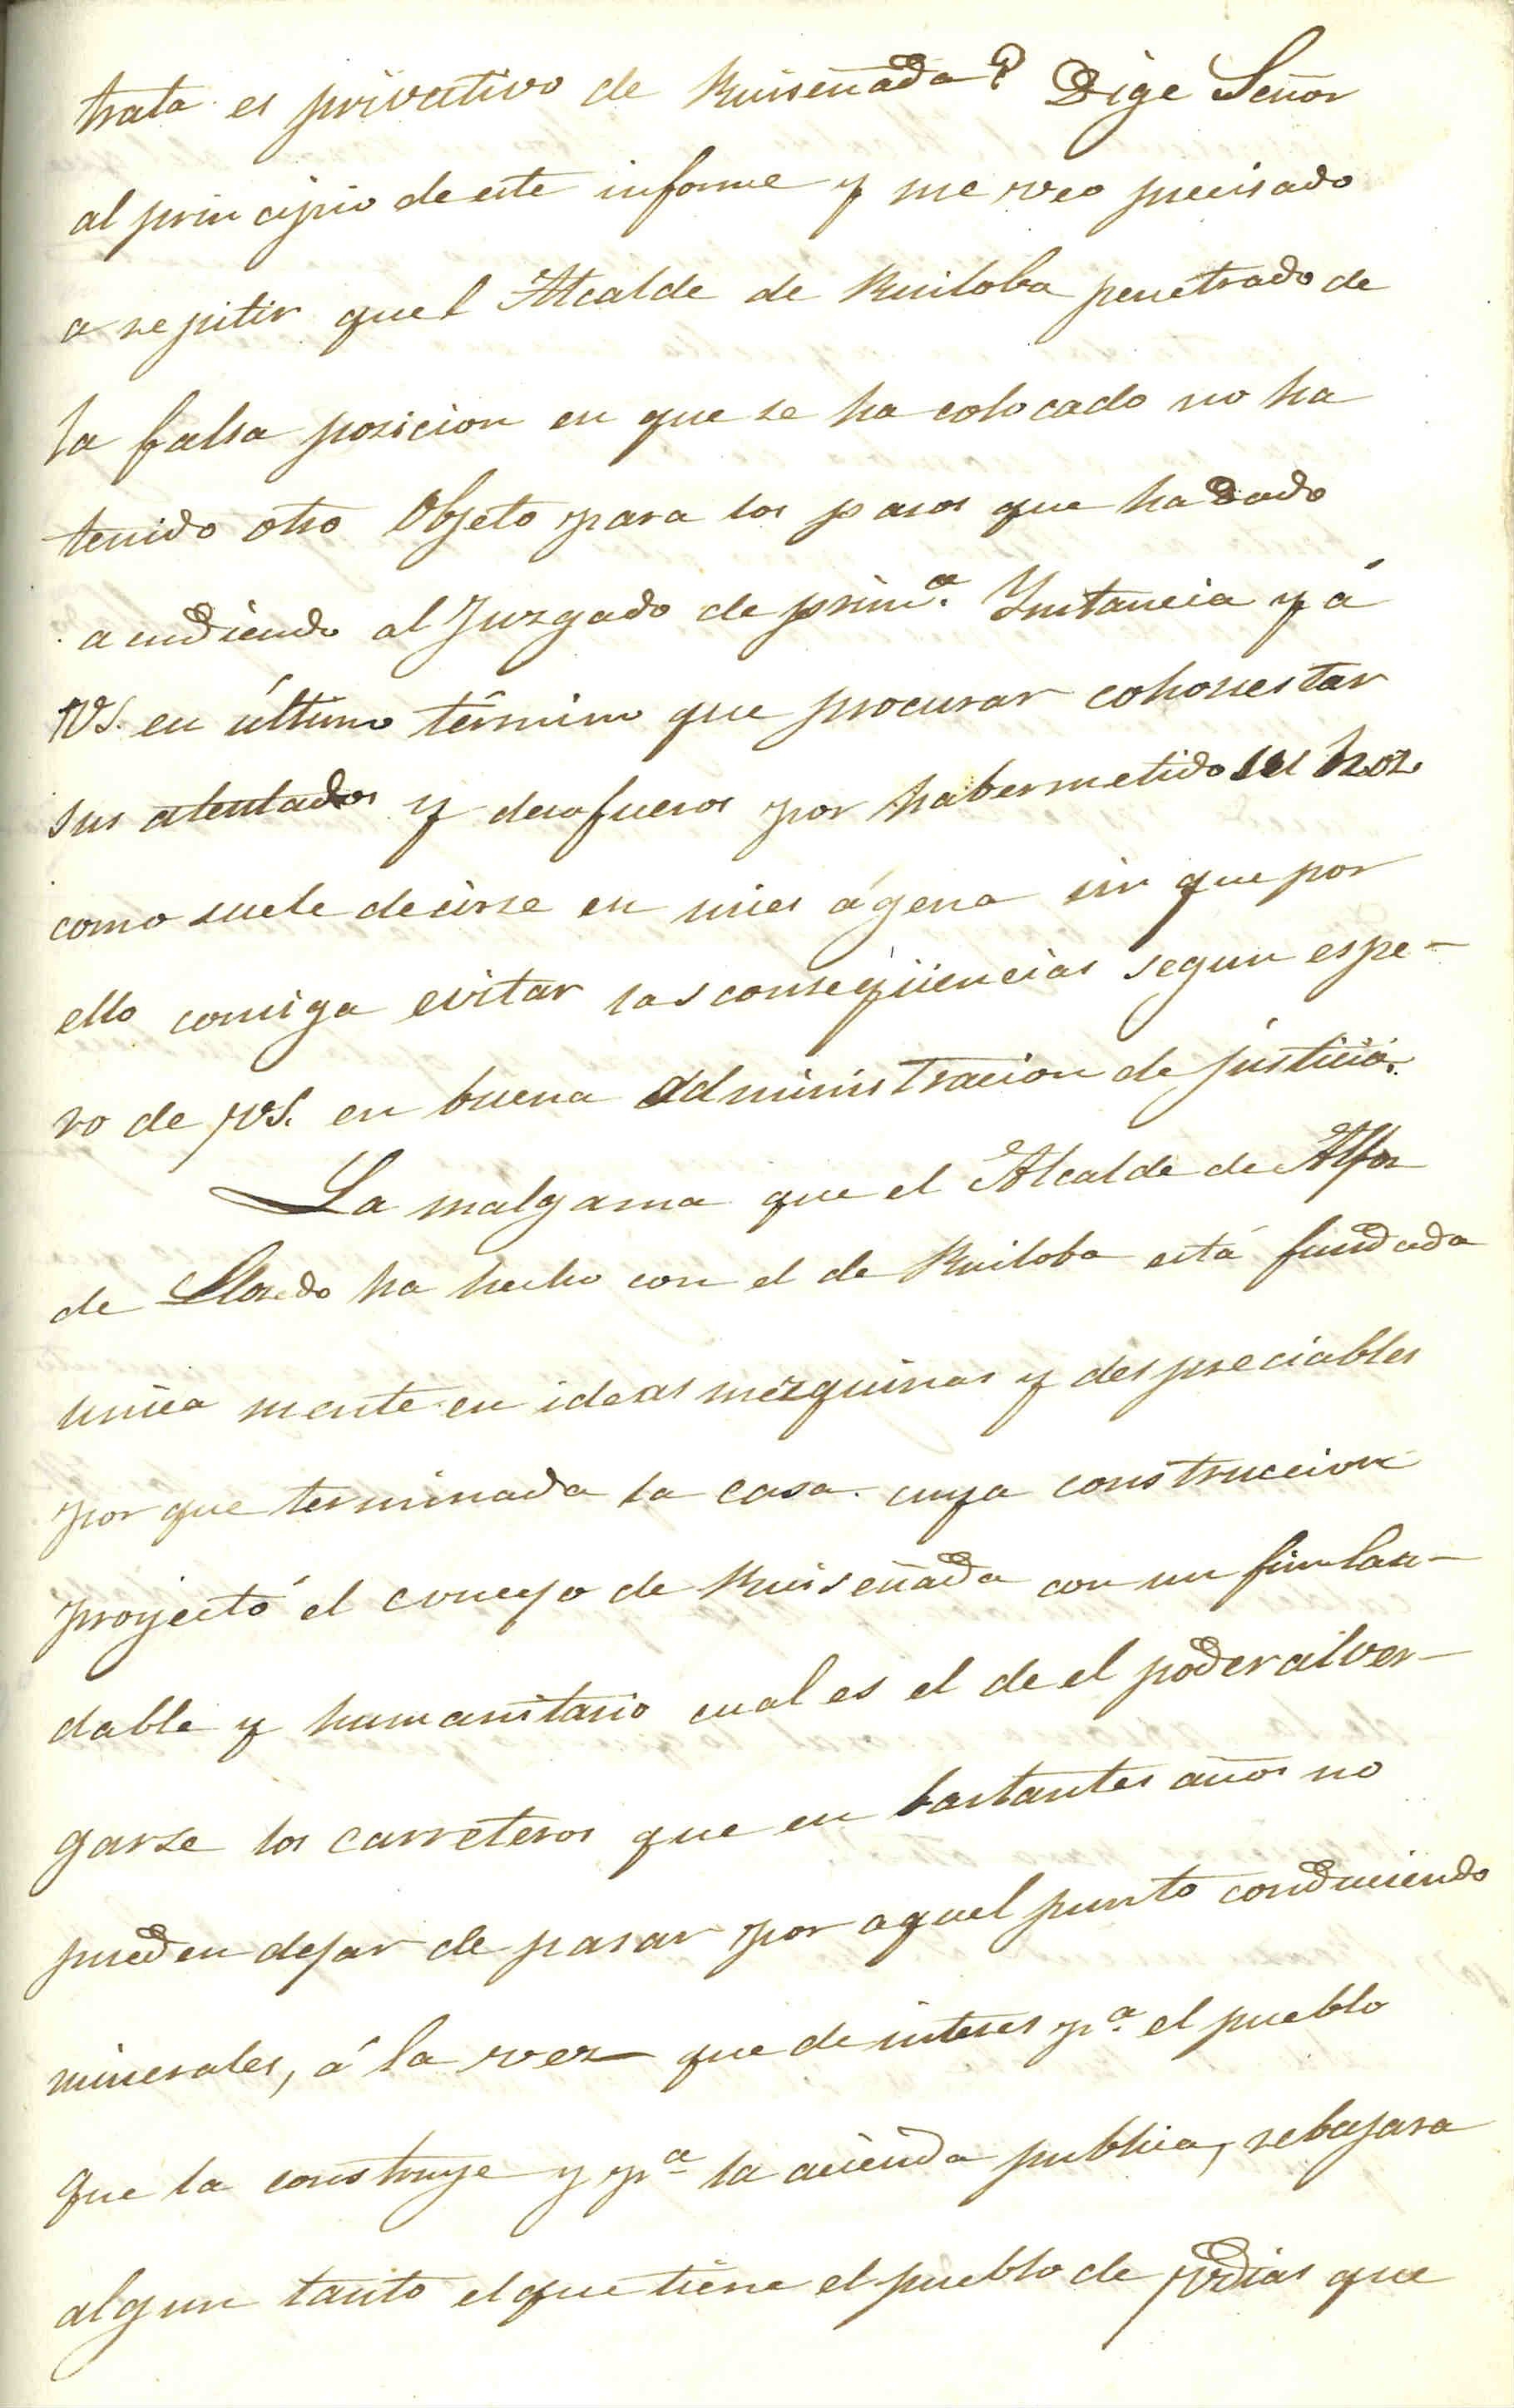 trata es privativo de Ruiseñada? Dige Señor
al principio de este informe y me veo precisado
a repitir quel Alcalde de Ruiloba penetrado de
la falsa posicion en que se ha colocado no ha
tenido otro Objeto para los pasos que ha dado
acudiendo al Juzgado de prim.ª Instancia y á
VS. en último término que procurar cohonestar
sus atentados y desafueros por habermetido su hoz
como suele decirse en mies ágena sin que por
ello consiga evitar las conseqüencias segun espe-
ro de VS. en buena administracion de justicia.
La malgama que el Alcalde de Alfoz
de Lloredo ha hecho con el de Ruiloba está fundada
unica mente en ideas mezquinas y despreciables
por que terminada la casa cuya construccion
proyectó el concejo de Ruiseñada con un fin lau-
dable y humanitario cual es el de el poder alver-
garse los carreteros que en bastantes años no
pueden dejar de pasar por aquel punto conduciendo
minerales, á la vez que de interes p.ª el pueblo
que la construye y p.ª la acienda publica, rebajara
algun tanto el que tiene el pueblo de Udias que